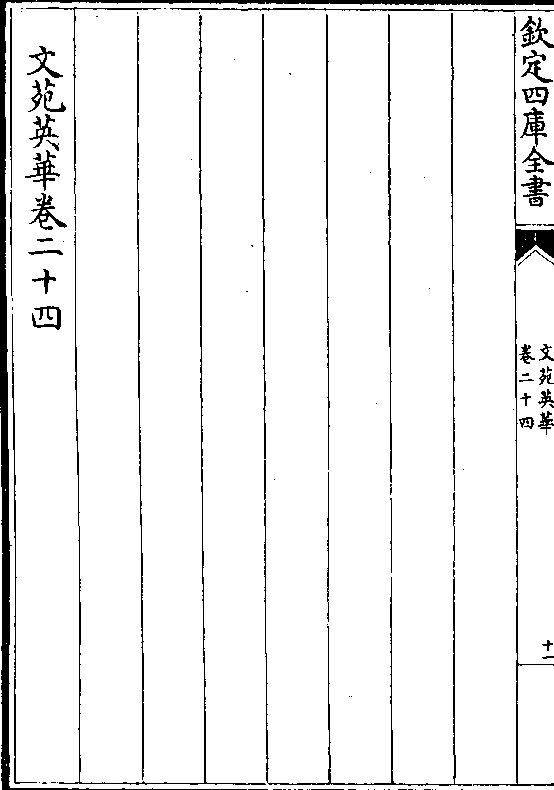 欽定四庫全書
文苑英華
卷二十四
十一
文苑英華卷二十四